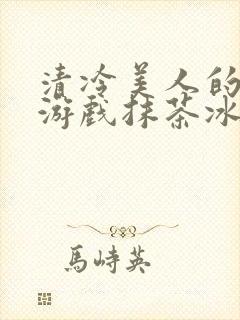 清冷美人的
游戏抹茶冰
馬峙英